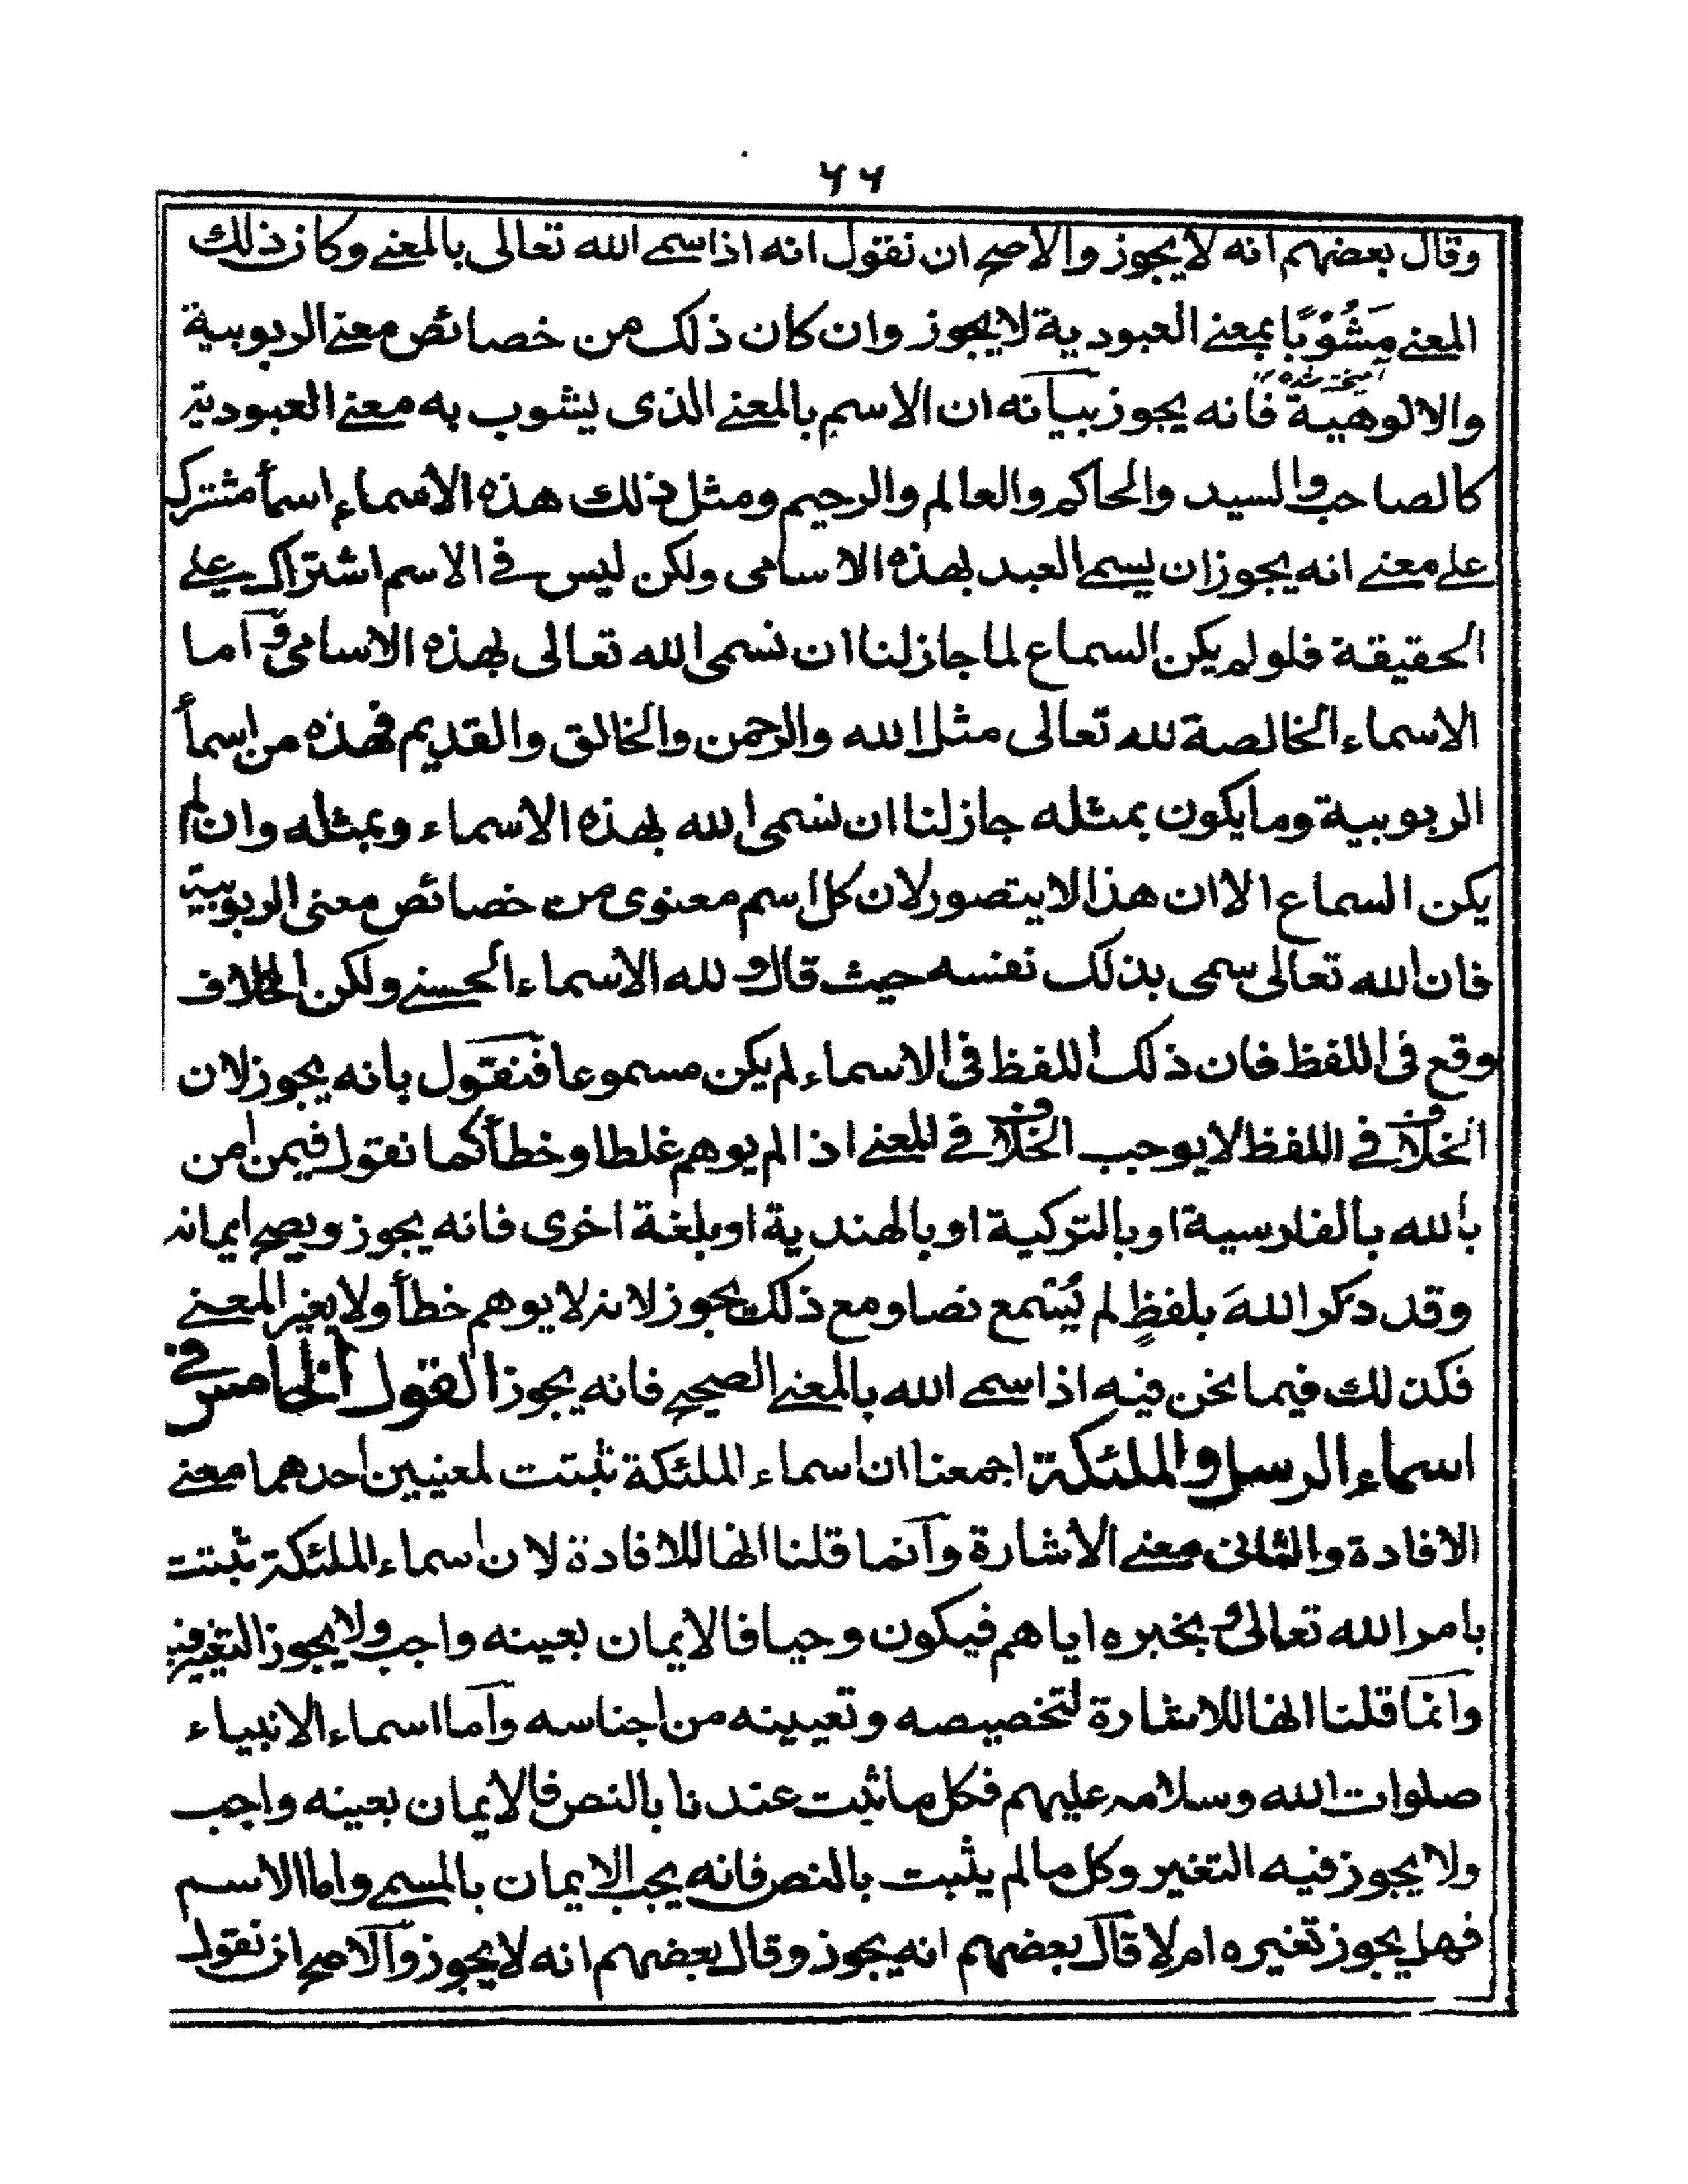 ٦٦
وقال بعضهم انه لا يجوز والاصح ان نقول انه اذا سمے الله تعالى بالمعنے وكان ذلك
المعنے مَشُوْبًا بمعنے العبودية لا يجوز وان كان ذلك من خصائص معنے الربوبية
والالوهية فانه يجوز بيانه ان الاسم بالمعنے الذى يشوب به معنے العبودية
كالصاحب والسيد والحاكم والعالم والرحيم ومثل ذلك هذه الاسماء اسمأ مشترك
علے معنے انه يجوز ان يسمے العبد بهذه الاسامى ولكن ليس فے الاسم اشتراك علے
الحقيقة فلو لم يكن السماع لما جاز لنا ان نسمى الله تعالى بهذه الاسامى و اما
الاسماء الخالصة لله تعالى مثل الله والرحمن والخالق والقديم فهذه من اسمأ
الربوبية وما يكون بمثله جاز لنا ان نسمى الله بهذه الاسماء وبمثله وان لم
يكن السماع الا ان هذا لا يتصور لان كل اسم معنوى من خصائص معنى الربوبية
فان الله تعالى سمى بذلك نفسه حيث قال و لله الاسماء الحسنے ولكن الخلاف
وقع فى اللفظ فان ذلك اللفظ فى الاسماء لم يكن مسموعا فنقول بانه يجوز لان
الخلاف فے اللفظ لا يوجب الخلاف فے المعنے اذا لم يوهم غلطا وخطأ كما نقول فيمن امن
بالله بالفارسية او بالتركية او بالهندية او بلغة اخرى فانه يجوز ويصح ايمانه
وقد ذكر اللهَ بلفظٍ لم يُسْمع نصا ومع ذلك يجوز لانه لا يوهم خطأ ولا يغير المعنے
فكذلك فيما نحن فيه اذا سمے الله بالمعنے الصحيح فانه يجوز القول الخامس فے
اسماء الرسل والملئكة اجمعنا ان اسماء الملئكة ثبتت لمعنيين احدهما معنے
الافادة والثانى معنے الاشارة وانما قلنا انها للافادة لان اسماء الملئكة ثبتت
بامر الله تعالى و بخبره اياهم فيكون وحيا فالايمان بعينه واجب ولا يجوز التغير فيه
وانما قلنا انها للاشارة لتخصيصه وتعيينه من اجناسه واما اسماء الانبياء
صلوات الله وسلامه عليهم فكل ما ثبت عندنا بالنص فالايمان بعينه واجب
ولا يجوز فيه التغير وكل ما لم يثبت بالنص فانه يجب الايمان بالمسمے واما الاسم
فهل يجوز تغيره ام لا قال بعضهم انه يجوز وقال بعضهم انه لا يجوز والاصح ان نقول